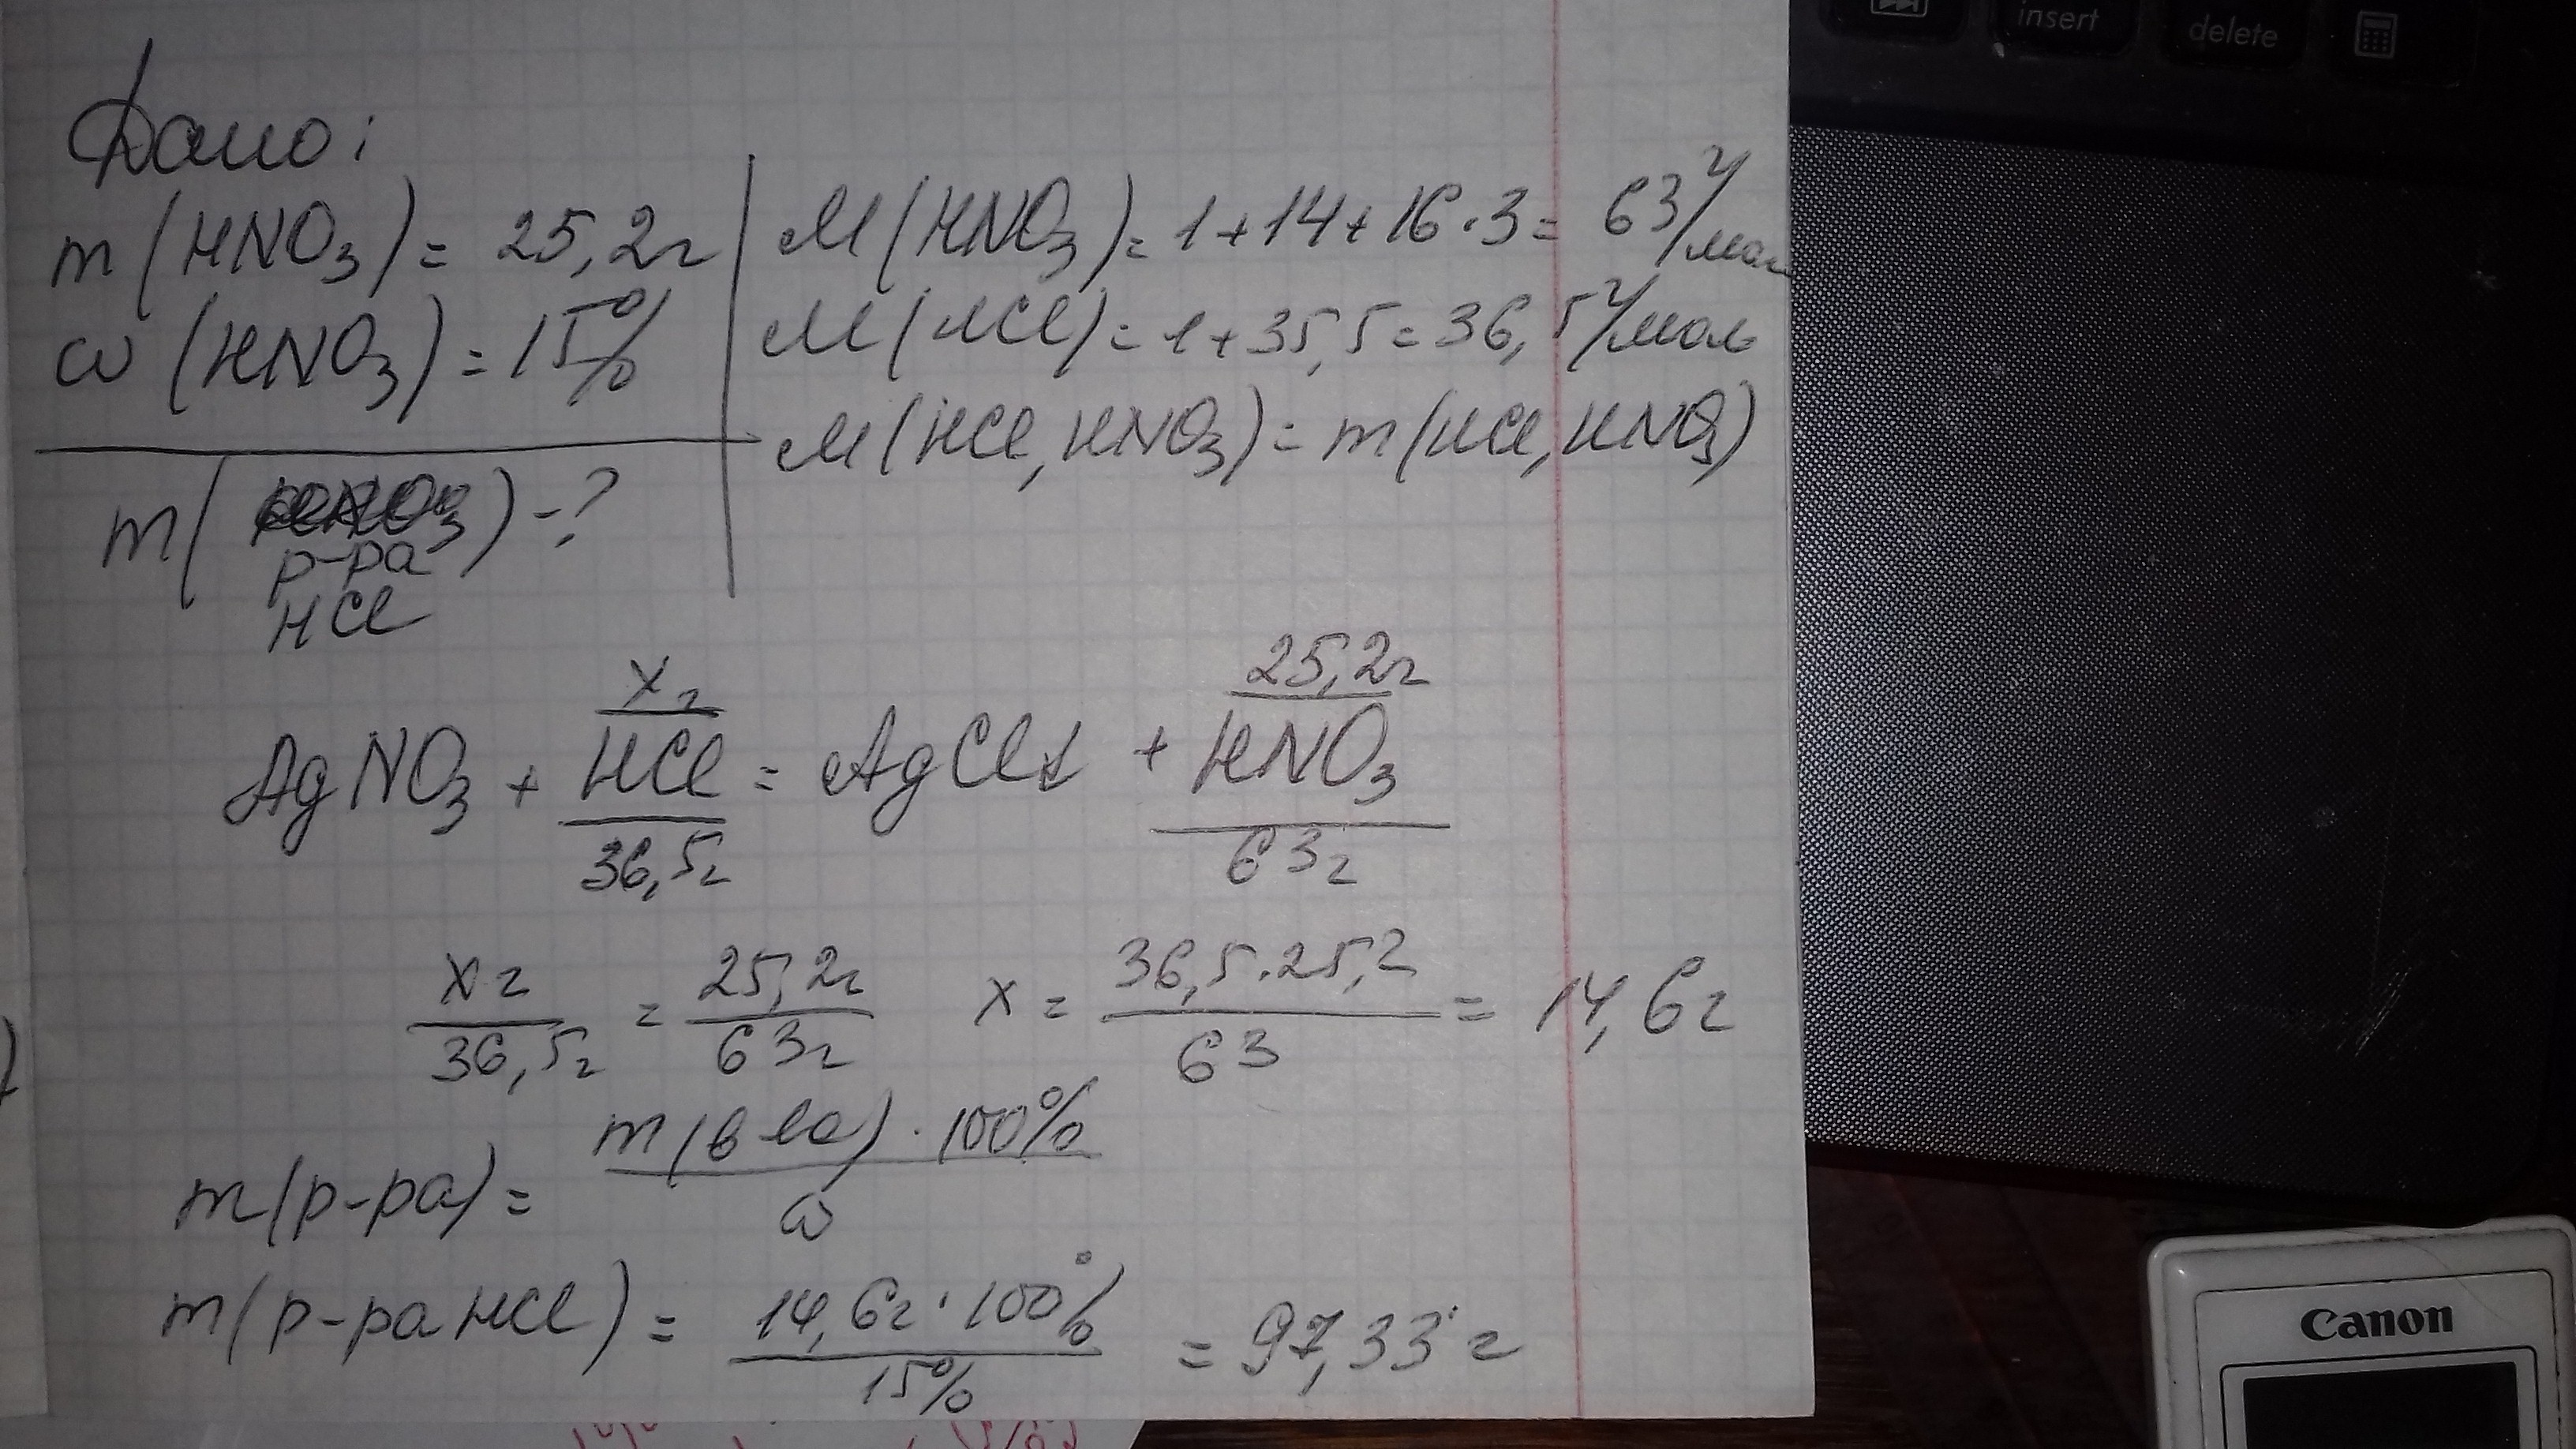 Дано:
m(HNO₃) = 25,2г
ω(HNO₃) = 15%
m(р-ра HCl) - ?
M(HNO₃) = 1 + 14 + 16 · 3 = 63 г/мол
M(HCl) = 1 + 35,5 = 36,5 г/моль
M(HCl, HNO₃) = m(HCl, HNO₃)
xг 25,2г
AgNO₃ + HCl = AgCl↓ + HNO₃
36,5г 63г
xг/36,5г = 25,2г/63г x = 36,5·25,2/63 = 14,6г
m(р-ра) = m(в-ва) · 100%/ω
m(р-ра HCl) = 14,6г · 100%/15% = 97,33 г
insert
delete
Canon